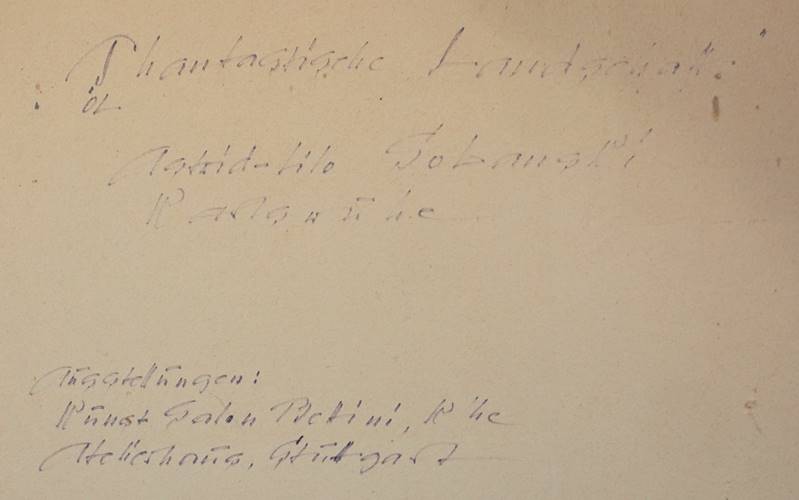 "Phantastische Landschaft"
ÖL
Astrid-Lilo
Karlsruhe
Ausstellungen:
Kunst Salon Bettini, K'he
Atelierhaus, Stuttgart